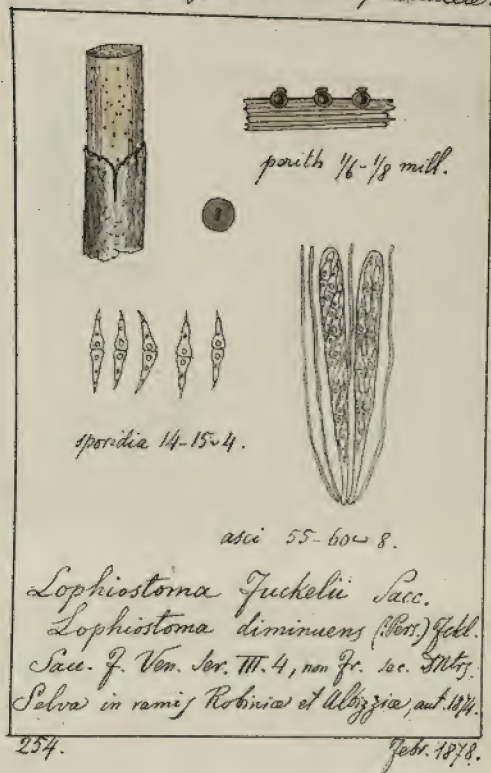 perith 1/6-1/8 mill.
sporidia 14-15 ∾ 4.
asci 55-60 ∾ 8.
Lophiostoma Fuckelii Sacc.
Lophiostoma diminuens (Pers.) Fckl.
Sacc. F. Ven. Ser. III. 4, non Fr. sec. DNtrs.
Selva in ramis Robiniæ et Albizziæ, aut. 1874.
254.
Febr. 1878.